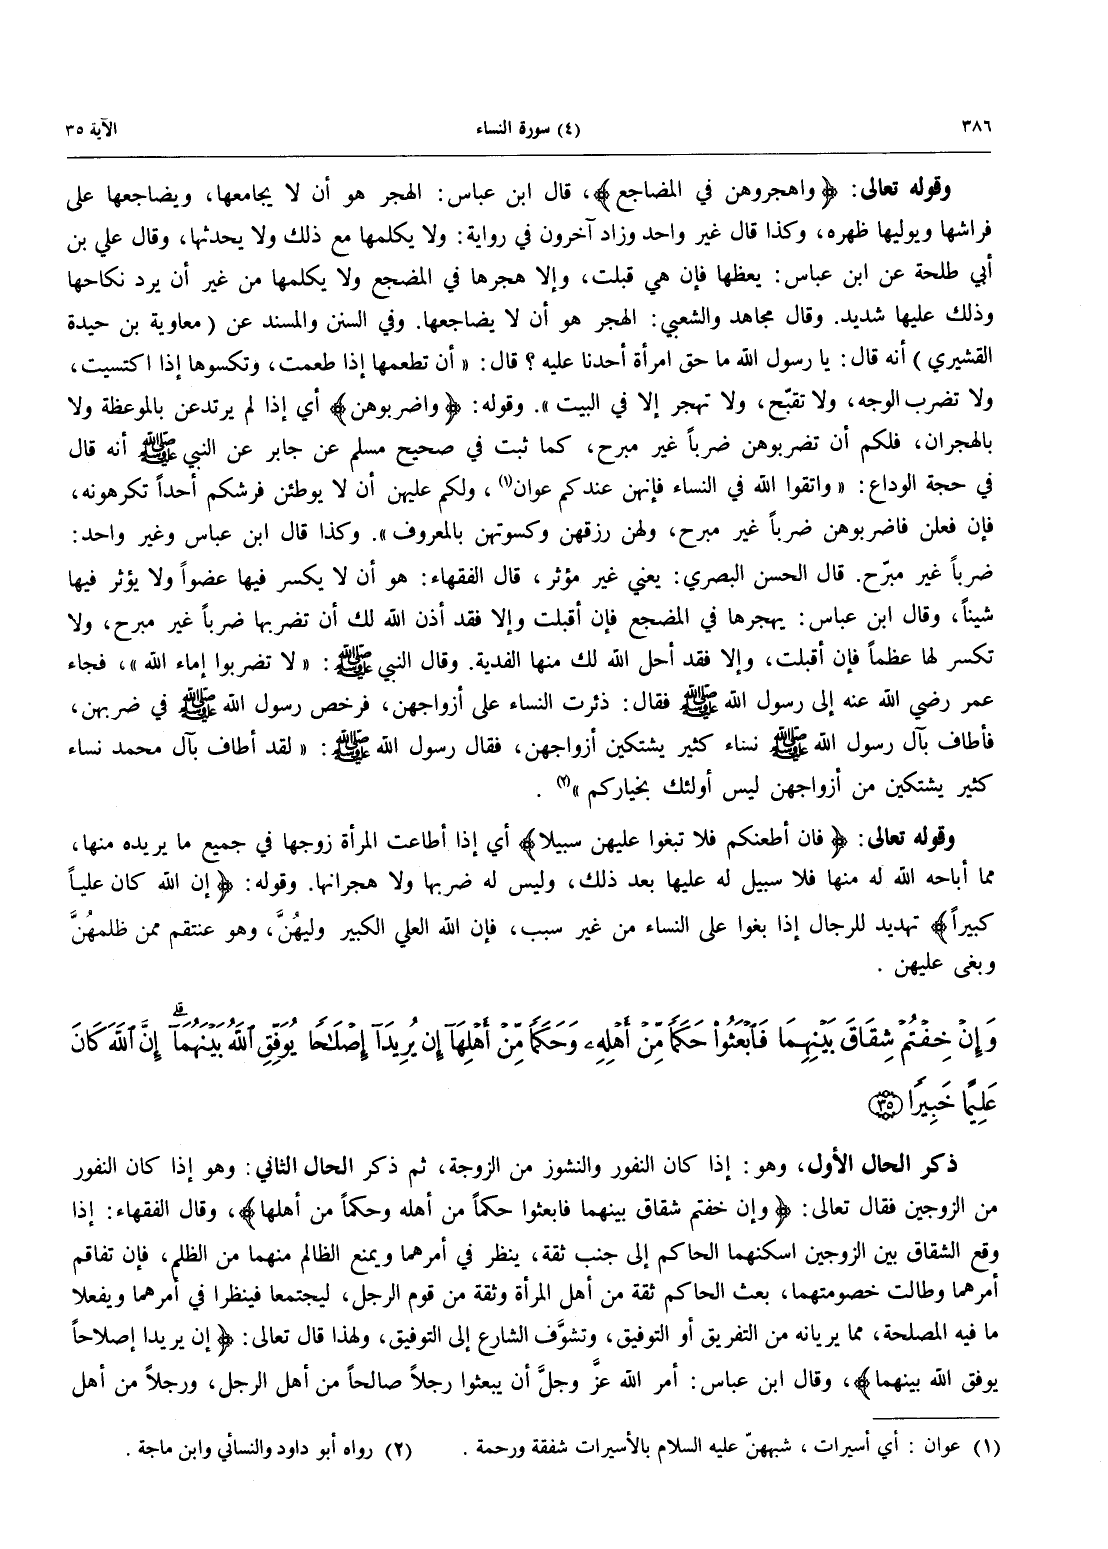 ٣٨٦ (٤) سورة النساء الآية ٣٥
وقوله تعالى: ﴿واهجروهن في المضاجع﴾، قال ابن عباس: الهجر هو أن لا يجامعها، ويضاجعها على
فراشها ويوليها ظهره، وكذا قال غير واحد وزاد آخرون في رواية: ولا يكلمها مع ذلك ولا يحدثها، وقال علي بن
أبي طلحة عن ابن عباس: يعظها فإن هي قبلت، وإلا هجرها في المضجع ولا يكلمها من غير أن يرد نكاحها
وذلك عليها شديد. وقال مجاهد والشعبي: الهجر هو أن لا يضاجعها. وفي السنن والمسند عن (معاوية بن حيدة
القشيري) أنه قال: يا رسول الله ما حق امرأة أحدنا عليه؟ قال: «أن تطعمها إذا طعمت، وتكسوها إذا اكتسيت،
ولا تضرب الوجه، ولا تقبّح، ولا تهجر إلا في البيت». وقوله: ﴿واضربوهن﴾ أي إذا لم يرتدعن بالموعظة ولا
بالهجران، فلكم أن تضربوهن ضرباً غير مبرح، كما ثبت في صحيح مسلم عن جابر عن النبي ﷺ أنه قال
في حجة الوداع: «واتقوا الله في النساء فإنهن عندكم عوان(١)، ولكم عليهن أن لا يوطئن فرشكم أحداً تكرهونه،
فإن فعلن فاضربوهن ضرباً غير مبرح، ولهن رزقهن وكسوتهن بالمعروف». وكذا قال ابن عباس وغير واحد:
ضرباً غير مبرّح. قال الحسن البصري: يعني غير مؤثر، قال الفقهاء: هو أن لا يكسر فيها عضواً ولا يؤثر فيها
شيئاً، وقال ابن عباس: يهجرها في المضجع فإن أقبلت وإلا فقد أذن الله لك أن تضربها ضرباً غير مبرح، ولا
تكسر لها عظماً فإن أقبلت، وإلا فقد أحل الله لك منها الفدية. وقال النبي ﷺ: «لا تضربوا إماء الله»، فجاء
عمر رضي الله عنه إلى رسول الله ﷺ فقال: ذئرت النساء على أزواجهن، فرخص رسول الله ﷺ في ضربهن،
فأطاف بآل رسول الله ﷺ نساء كثير يشتكين أزواجهن، فقال رسول الله ﷺ: «لقد أطاف بآل محمد نساء
كثير يشتكين من أزواجهن ليس أولئك بخياركم»(٢).
وقوله تعالى: ﴿فان أطعنكم فلا تبغوا عليهن سبيلا﴾ أي إذا أطاعت المرأة زوجها في جميع ما يريده منها،
مما أباحه الله له منها فلا سبيل له عليها بعد ذلك، وليس له ضربها ولا هجرانها. وقوله: ﴿إن الله كان علياً
كبيراً﴾ تهديد للرجال إذا بغوا على النساء من غير سبب، فإن الله العلي الكبير وليهُنَّ، وهو عنتقم ممن ظلمهُنَّ
وبغى عليهن.
وَإِنْ خِفْتُمْ شِقَاقَ بَيْنِهِمَا فَٱبْعَثُوا۟ حَكَمًا مِّنْ أَهْلِهِۦ وَحَكَمًا مِّنْ أَهْلِهَآ إِن يُرِيدَآ إِصْلَٰحًا يُوَفِّقِ ٱللَّهُ بَيْنَهُمَآ ۗ إِنَّ ٱللَّهَ كَانَ
عَلِيمًا خَبِيرًا ٣٥
ذكر الحال الأول، وهو: إذا كان النفور والنشوز من الزوجة، ثم ذكر الحال الثاني: وهو إذا كان النفور
من الزوجين فقال تعالى: ﴿وإن خفتم شقاق بينهما فابعثوا حكماً من أهله وحكماً من أهلها﴾، وقال الفقهاء: إذا
وقع الشقاق بين الزوجين اسكنهما الحاكم إلى جنب ثقة، ينظر في أمرهما ويمنع الظالم منهما من الظلم، فإن تفاقم
أمرهما وطالت خصومتهما، بعث الحاكم ثقة من أهل المرأة وثقة من قوم الرجل، ليجتمعا فينظرا في أمرهما ويفعلا
ما فيه المصلحة، مما يريانه من التفريق أو التوفيق، وتشوَّف الشارع إلى التوفيق، ولهذا قال تعالى: ﴿إن يريدا إصلاحاً
يوفق الله بينهما﴾، وقال ابن عباس: أمر الله عزَّ وجلَّ أن يبعثوا رجلاً صالحاً من أهل الرجل، ورجلاً من أهل
(١) عوان: أي أسيرات، شبههنّ عليه السلام بالأسيرات شفقة ورحمة. (٢) رواه أبو داود والنسائي وابن ماجة.